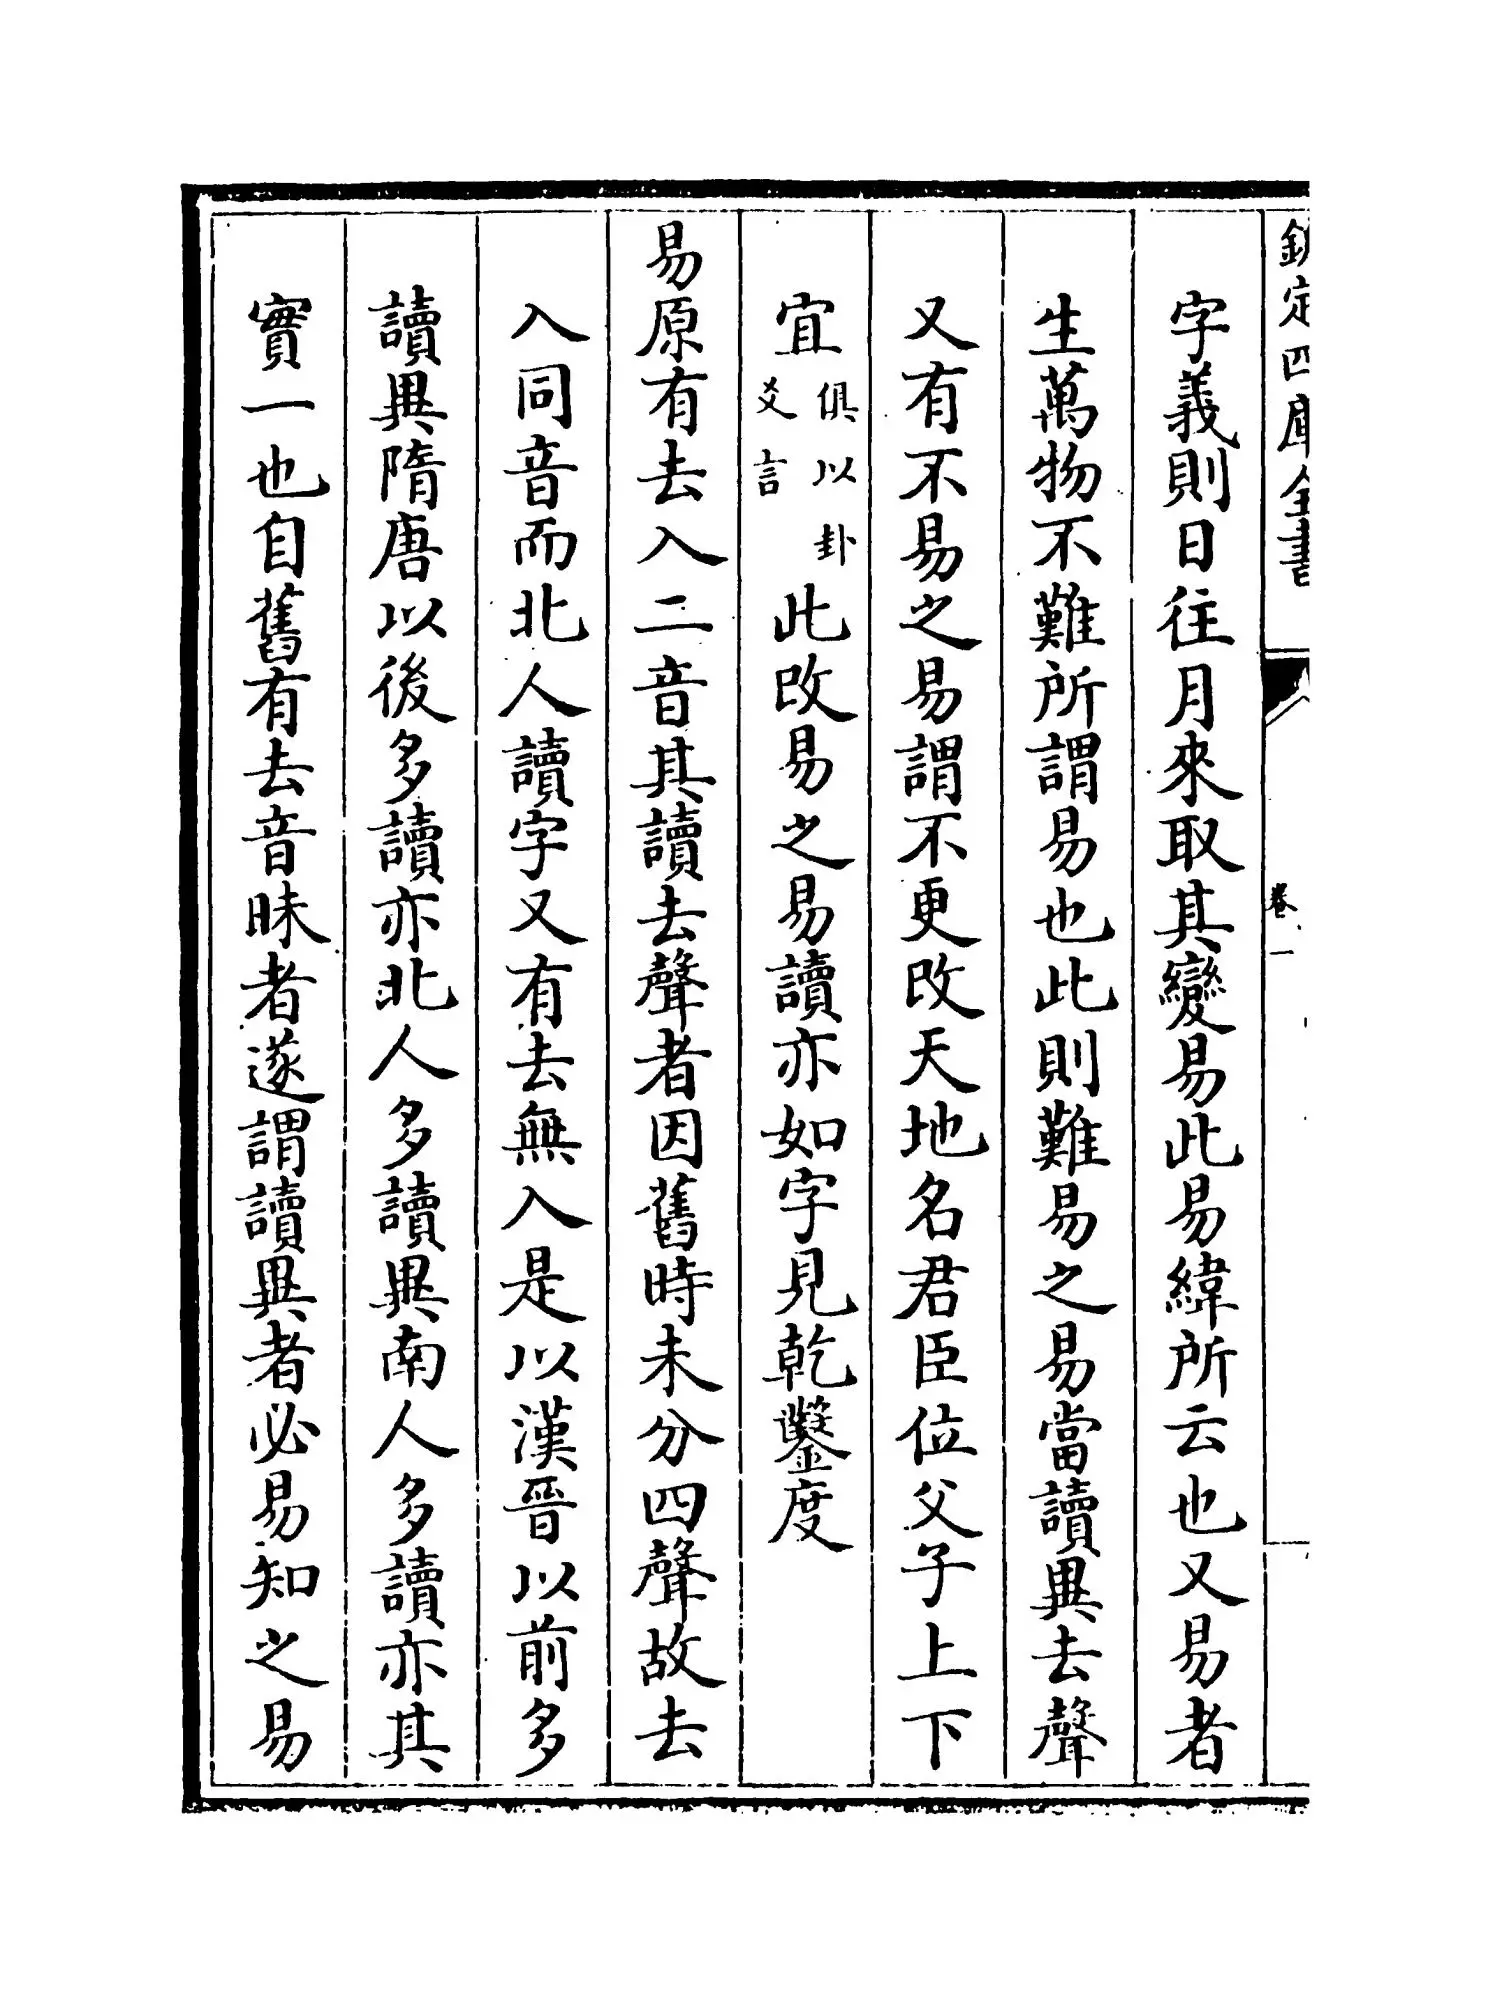 欽定四庫全書
卷一
字義則日往月來取其變易此易緯所云也又易者
生萬物不難所謂易也此則難易之易當讀異去聲
又有不易之易謂不更改天地名君臣位父子上下
宜俱以卦爻言此改易之易讀亦如字見乾鑿度
易原有去入二音其讀去聲者因舊時未分四聲故去
入同音而北人讀字又有去無入是以漢晉以前多
讀異隋唐以後多讀亦北人多讀異南人多讀亦其
實一也自舊有去音昧者遂謂讀異者必易知之易